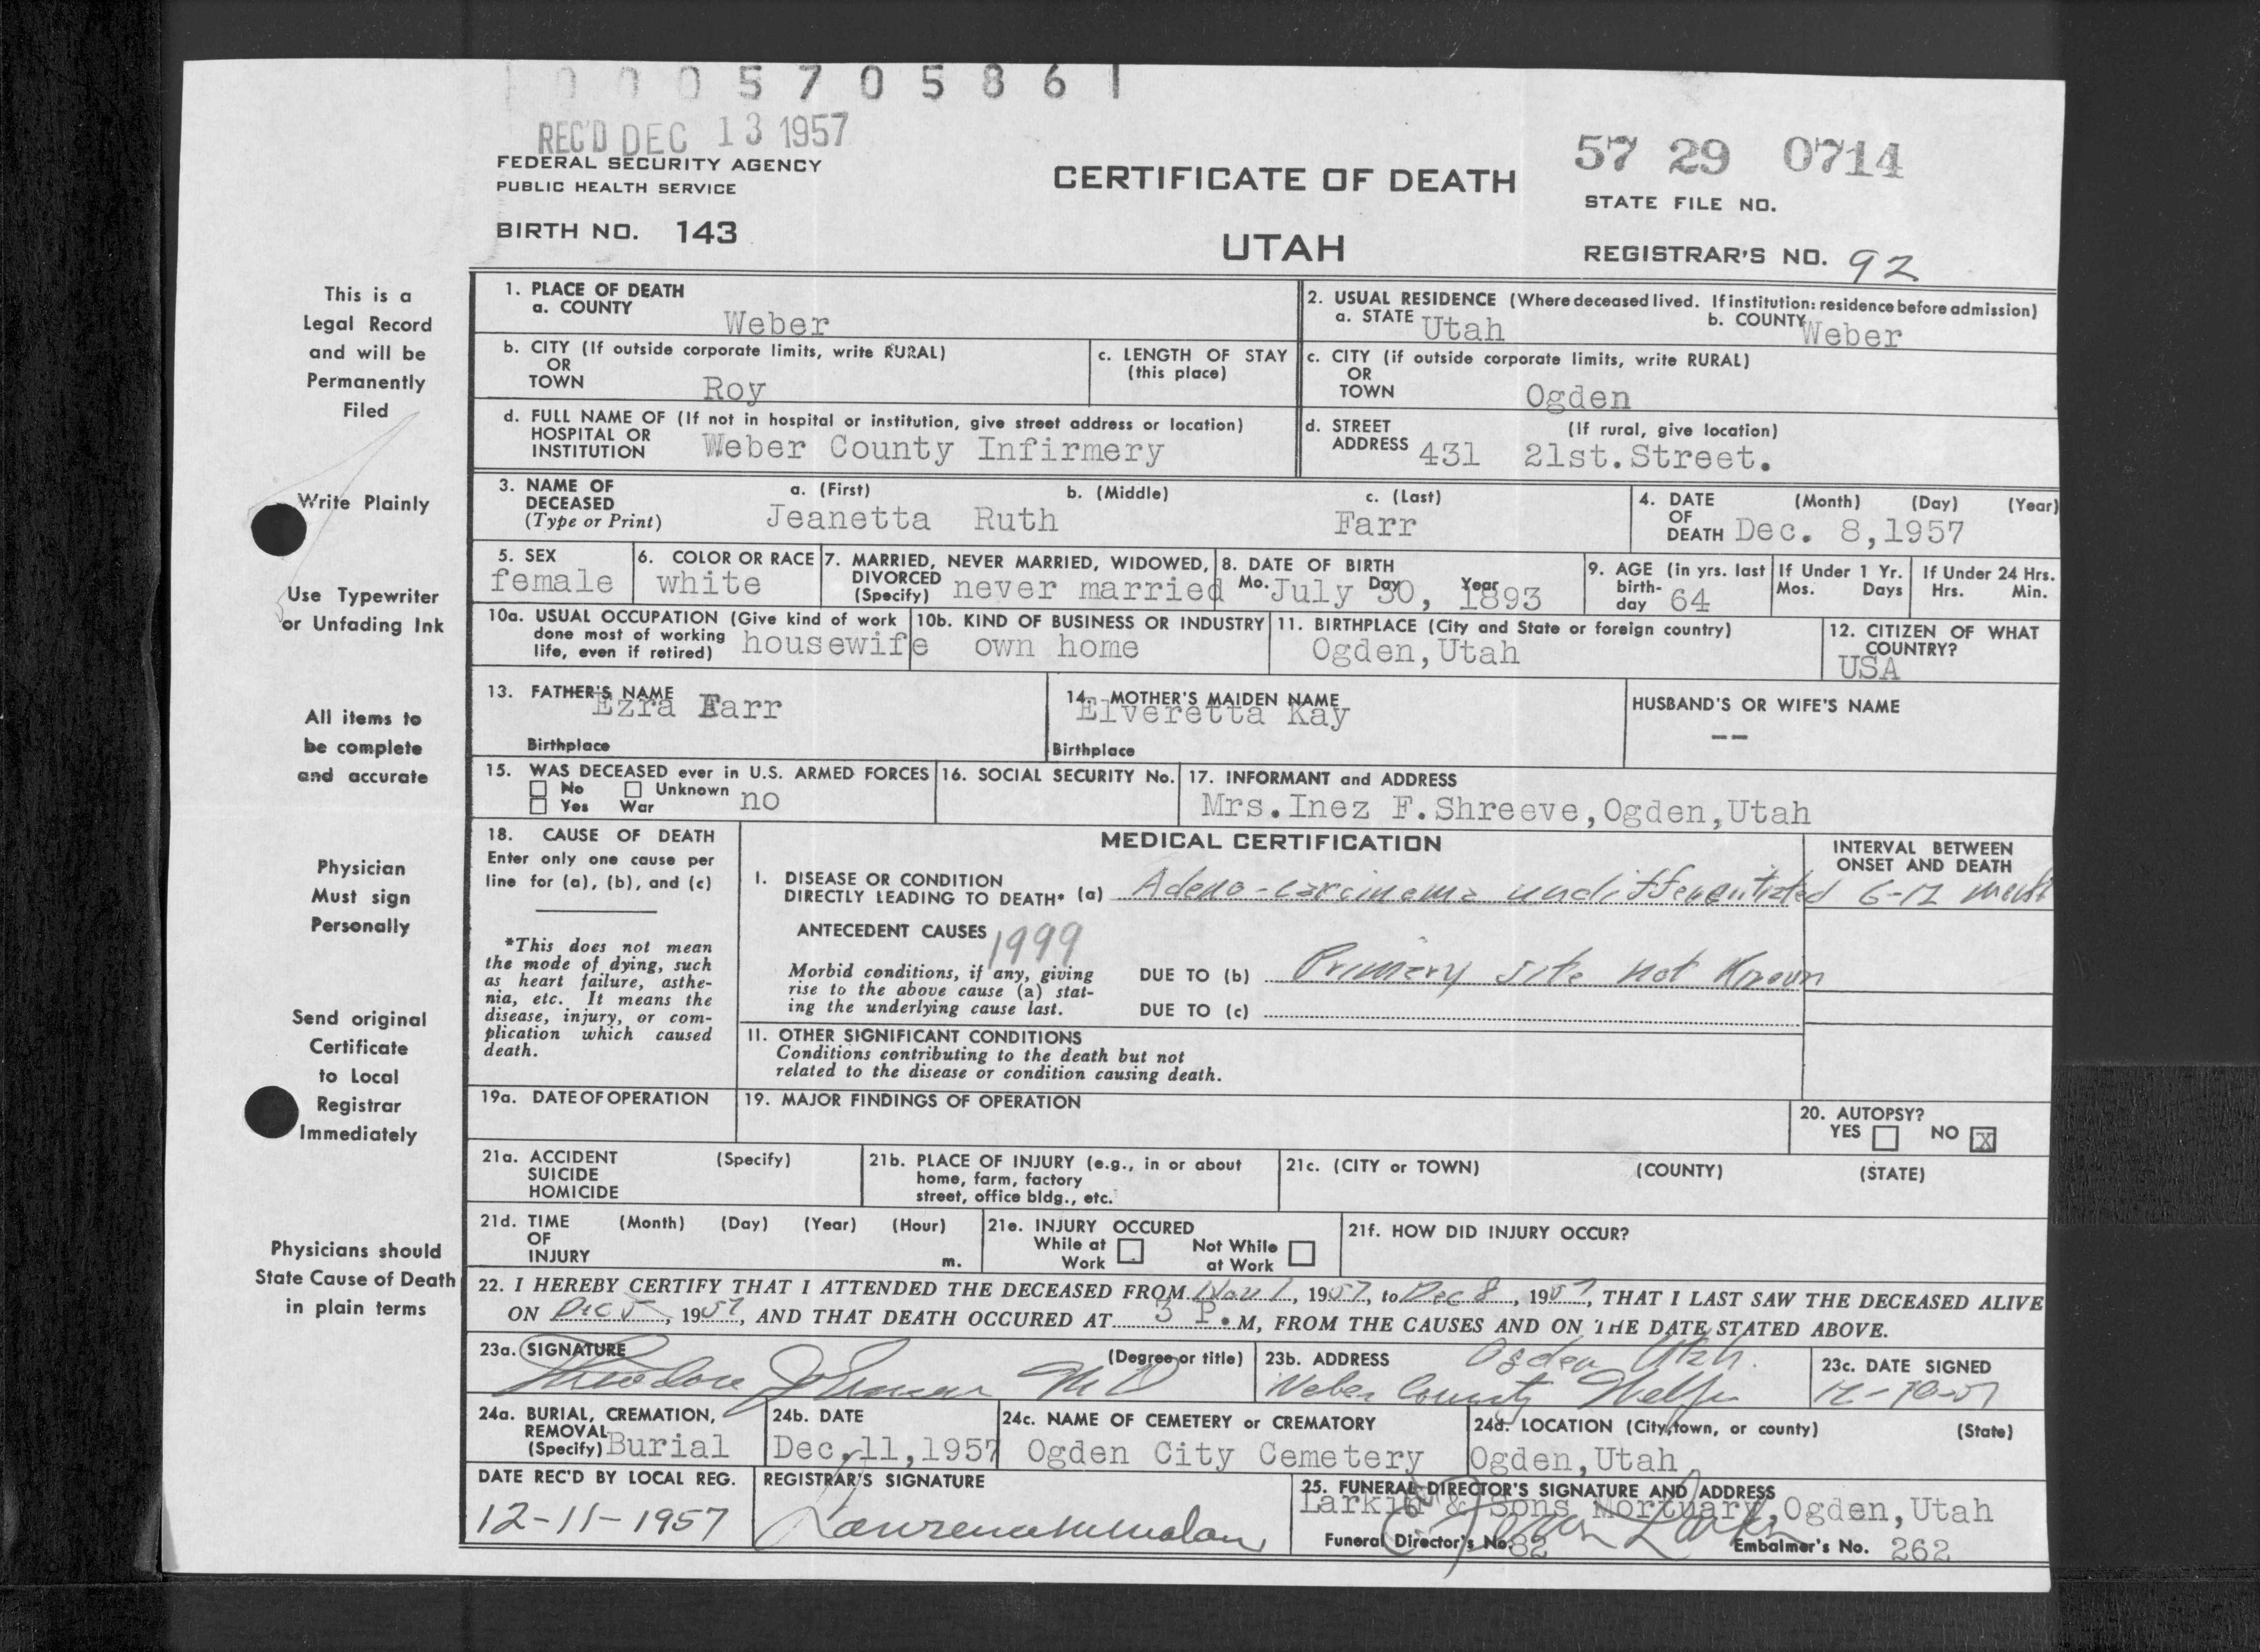 0 0 0 5 7 0 5 8 6 1
REC'D DEC 13 1957
FEDERAL SECURITY AGENCY
PUBLIC HEALTH SERVICE
BIRTH NO. 143
CERTIFICATE OF DEATH
UTAH
57 29 0714
STATE FILE NO.
REGISTRAR'S NO. 92
This is a
Legal Record
and will be
Permanently
Filed
Write Plainly
Use Typewriter
or Unfading Ink
All items to
be complete
and accurate
Physician
Must sign
Personally
Send original
Certificate
to Local
Registrar
Immediately
Physicians should
State Cause of Death
in plain terms
1. PLACE OF DEATH
a. COUNTY
Weber
2. USUAL RESIDENCE (Where deceased lived. If institution: residence before admission)
a. STATE Utah b. COUNTY Weber
b. CITY (If outside corporate limits, write RURAL)
OR
TOWN Roy
c. LENGTH OF STAY
(this place)
c. CITY (if outside corporate limits, write RURAL)
OR
TOWN Ogden
d. FULL NAME OF (If not in hospital or institution, give street address or location)
HOSPITAL OR
INSTITUTION Weber County Infirmery
d. STREET (If rural, give location)
ADDRESS 431 21st.Street.
3. NAME OF a. (First) b. (Middle) c. (Last)
DECEASED
(Type or Print) Jeanetta Ruth Farr
4. DATE (Month) (Day) (Year)
OF
DEATH Dec. 8,1957
5. SEX
female
6. COLOR OR RACE
white
7. MARRIED, NEVER MARRIED, WIDOWED,
DIVORCED
(Specify) never married
8. DATE OF BIRTH
Mo. Day Year
July 30, 1893
9. AGE (in yrs. last
birth-
day 64
If Under 1 Yr.
Mos. Days
If Under 24 Hrs.
Hrs. Min.
10a. USUAL OCCUPATION (Give kind of work
done most of working
life, even if retired) housewife
10b. KIND OF BUSINESS OR INDUSTRY
own home
11. BIRTHPLACE (City and State or foreign country)
Ogden,Utah
12. CITIZEN OF WHAT
COUNTRY?
USA
13. FATHER'S NAME
Ezra Farr
Birthplace
14. MOTHER'S MAIDEN NAME
Elveretta Kay
Birthplace
HUSBAND'S OR WIFE'S NAME
--
15. WAS DECEASED ever in U.S. ARMED FORCES
No Unknown
Yes War no
16. SOCIAL SECURITY No.
17. INFORMANT and ADDRESS
Mrs.Inez F.Shreeve,Ogden,Utah
18. CAUSE OF DEATH
Enter only one cause per
line for (a), (b), and (c)
*This does not mean
the mode of dying, such
as heart failure, asthe-
nia, etc. It means the
disease, injury, or com-
plication which caused
death.
MEDICAL CERTIFICATION
INTERVAL BETWEEN
ONSET AND DEATH
I. DISEASE OR CONDITION
DIRECTLY LEADING TO DEATH* (a) Adeno-carcinoma undifferentiated 6-12
ANTECEDENT CAUSES 1999
Morbid conditions, if any, giving
rise to the above cause (a) stat-
ing the underlying cause last.
DUE TO (b) Primary site not Known
DUE TO (c)
II. OTHER SIGNIFICANT CONDITIONS
Conditions contributing to the death but not
related to the disease or condition causing death.
19a. DATE OF OPERATION
19. MAJOR FINDINGS OF OPERATION
20. AUTOPSY?
YES NO X
21a. ACCIDENT (Specify)
SUICIDE
HOMICIDE
21b. PLACE OF INJURY (e.g., in or about
home, farm, factory
street, office bldg., etc.
21c. (CITY or TOWN) (COUNTY) (STATE)
21d. TIME (Month) (Day) (Year) (Hour)
OF
INJURY m.
21e. INJURY OCCURED
While at Not While
Work at Work
21f. HOW DID INJURY OCCUR?
22. I HEREBY CERTIFY THAT I ATTENDED THE DECEASED FROM Nov 1, 1957, to Dec 8, 1957, THAT I LAST SAW THE DECEASED ALIVE
ON Dec 5, 1957, AND THAT DEATH OCCURED AT 3 P.M, FROM THE CAUSES AND ON THE DATE STATED ABOVE.
23a. SIGNATURE (Degree or title)
Theodore MD
23b. ADDRESS Ogden Utah.
Weber County
23c. DATE SIGNED
12-10-57
24a. BURIAL, CREMATION,
REMOVAL
(Specify) Burial
24b. DATE
Dec.11,1957
24c. NAME OF CEMETERY or CREMATORY
Ogden City Cemetery
24d. LOCATION (City, town, or county) (State)
Ogden,Utah
DATE REC'D BY LOCAL REG.
12-11-1957
REGISTRAR'S SIGNATURE
25. FUNERAL DIRECTOR'S SIGNATURE AND ADDRESS
Larkin & Sons Mortuary,Ogden,Utah
Funeral Director's No. 82 Embalmer's No. 262